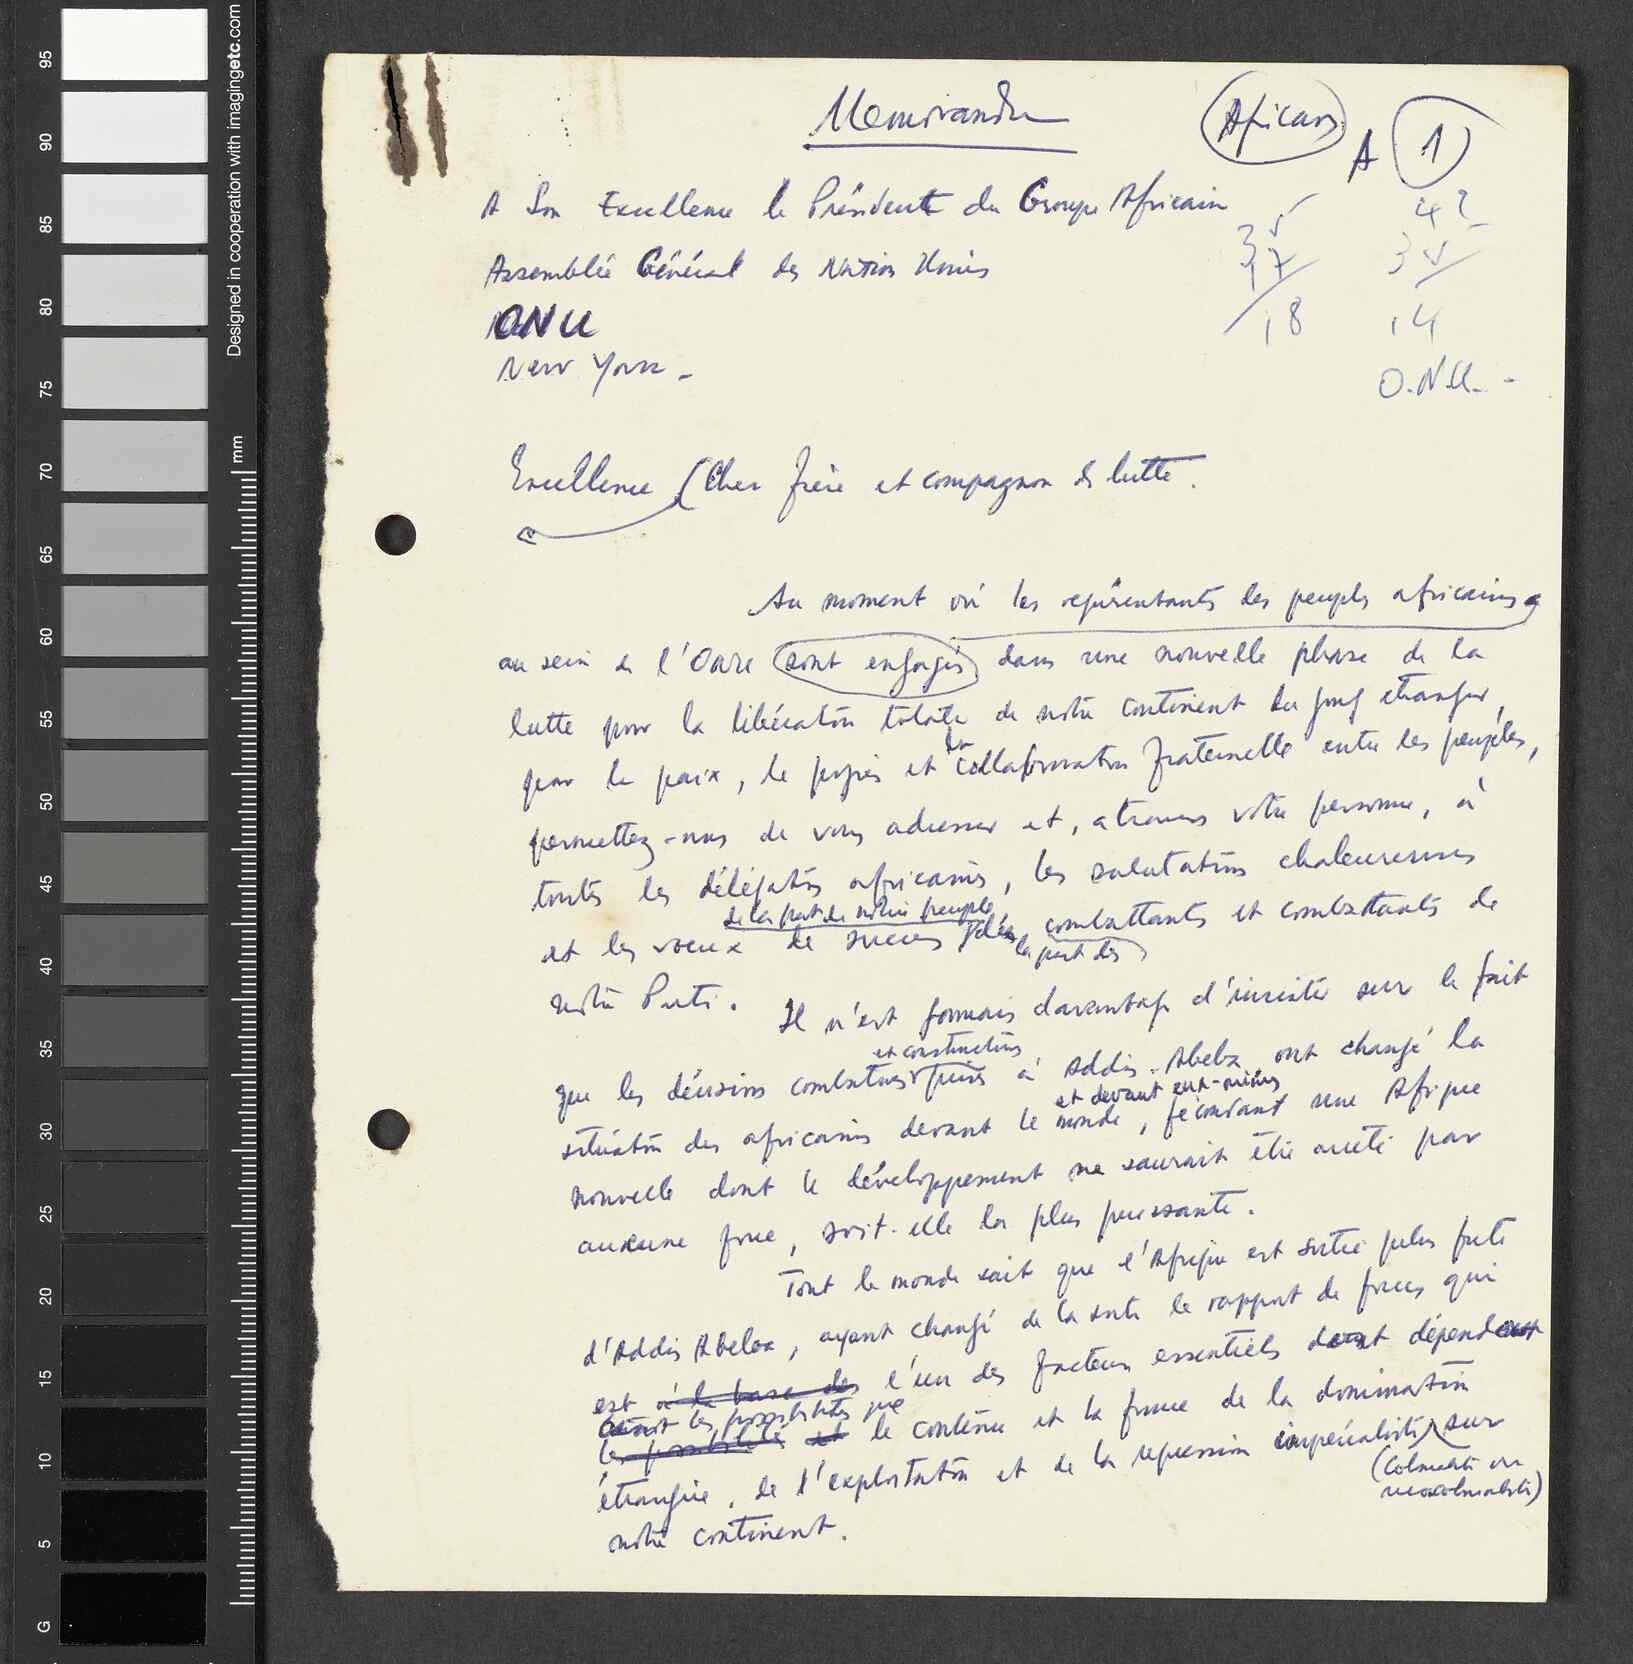 Designed in cooperation with imagingetc.com
mm
95
90
85
80
75
70
65
60
55
50
45
40
35
30
25
20
15
10
5
G
Memorandum
Africains
A 1
A Son Excellence le Président du Groupe Africain
Assemblée Général des Nations Unies
ONU
New York -
42
35
17
35
18
14
O.N.U. -
Excellence (Cher frère et compagnon de lutte.
Au moment où les représentants des peuples africains
au sein de l'Onu sont engagés dans une nouvelle phase de la
lutte pour la libération totale de notre continent du joug étranger,
pour la paix, le progrès et la collaboration fraternelle entre les peuples,
permettez-nous de vous adresser et, a travers votre personne, à
toutes les délégations africaines, les salutations chaleureuses
de la part de notre peuple
et les voeux de succès des combattants et combattants de
la part des
notre Parti.
Il n'est jamais davantage d'insister sur le fait
et constructives
que les décisions combatives prises à Addis-Abeba ont changé la
et devant eux-mêmes
situation des africains devant le monde, fécondant une Afrique
nouvelle dont le développement ne saurait être arrêté par
aucune force, soit-elle la plus puissante.
Tout le monde sait que l'Afrique est sortie plus forte
d'Addis Abeba, ayant changé de la sorte le rapport de forces qui
est à la base des l'un des facteurs essentiels dont dépend
les possibilités que
les possibilités et le contenu et la force de la domination
étrangère, de l'exploitation et de la repression impérialiste sur
(colonialiste ou
neocolonialiste)
notre continent.